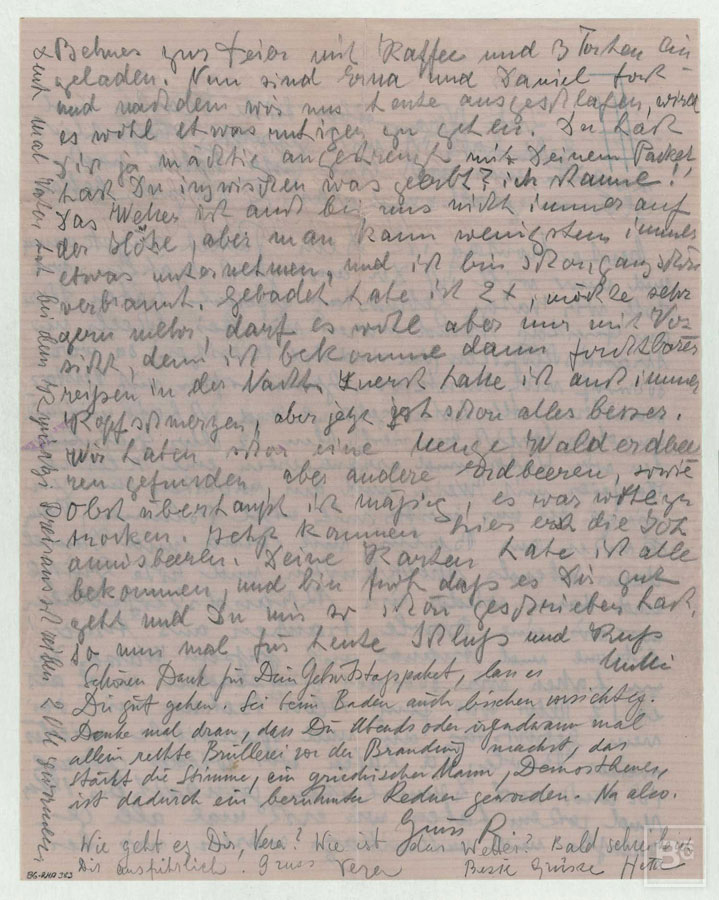 Behnes zur Feier mit Kaffee und 3 Torten ein
geladen. Nun sind Erna und Daniel fort
und nachdem wir uns heute ausgeschlafen, wird
es wohl etwas ruhiger zu gehen. Du hast
Dich ja mächtig angestrengt mit Deinem Packet,
hast Du inzwischen was geerbt? ich staune!
Das Wetter ist auch bei uns nicht immer auf
der Höhe, aber man kann wenigstens immer
etwas unternehmen, und ich bin schon ganz schön
verbrannt. Gebadet habe ich 2x, möchte sehr
gern mehr, darf es wohl aber nur mit Vor
sicht, denn ich bekomme dann furchtbares
reißen in der Nacht. Zuerst hatte ich auch immer
Kopfschmerzen, aber jetzt ist schon alles besser.
Wir haben schon eine Menge Walderdbee
ren gefunden aber andere Erdbeeren, sowie
Obst überhaupt ist mäßig, es war wohl zu
trocken. Jetzt kommen hier erst die Joh
annisbeeren. Deine Karten habe ich alle
bekommen, und bin froh daß es Dir gut
geht und Du mir so schön geschrieben hast.
So nun mal für heute Schluß und Kuß
Mutti
Schönen Dank für Dein Geburtstagspaket, lass es
Dir gut gehen. Sei beim Baden auch bischen vorsichtig.
Denke mal dran, dass Du Abends oder irgendwann mal
allein rechte Brüllerei vor der Brandung machst, das
stärkt die Stimme, ein griechischer Mann, Demosthenes,
ist dadurch ein berühmter Redner geworden. Na also.
Gruss P.
Wie geht es Dir, Vera? Wie ist das Wetter? Bald schreibe ich
Dir ausführlich. Gruss Vera Beste Grüsse
Denk mal Vater hat bei dem Preisausschreiben 2 gewonnen
BG